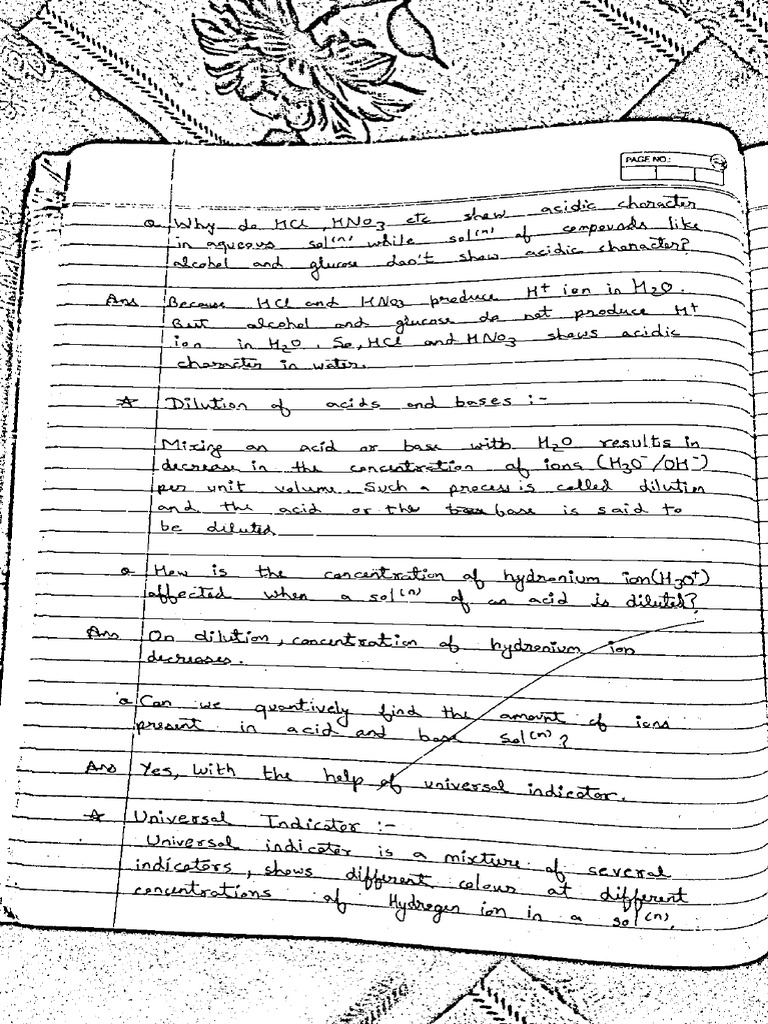 PAGE NO.:
Q Why do HCl, HNO3 etc show acidic character
in aqueous sol(n) while sol(n) of compounds like
alcohol and glucose don't show acidic character?
Ans Because HCl and HNO3 produce H+ ion in H2O.
But alcohol and glucose do not produce H+
ion in H2O. So, HCl and HNO3 shows acidic
character in water.
☆ Dilution of acids and bases :-
Mixing an acid or base with H2O results in
decrease in the concentration of ions (H3O-/OH-)
per unit volume. Such a process is called dilution
and the acid or the base is said to
be diluted
Q How is the concentration of hydronium ion(H3O+)
affected when a sol(n) of an acid is diluted?
Ans On dilution, concentration of hydronium ion
decreases.
Q Can we quantively find the amount of ions
present in acid and base sol(n)?
Ans Yes, with the help of universal indicator.
☆ Universal Indicator :-
Universal indicator is a mixture of several
indicators, shows different colour at different
concentrations of Hydrogen ion in a sol(n).